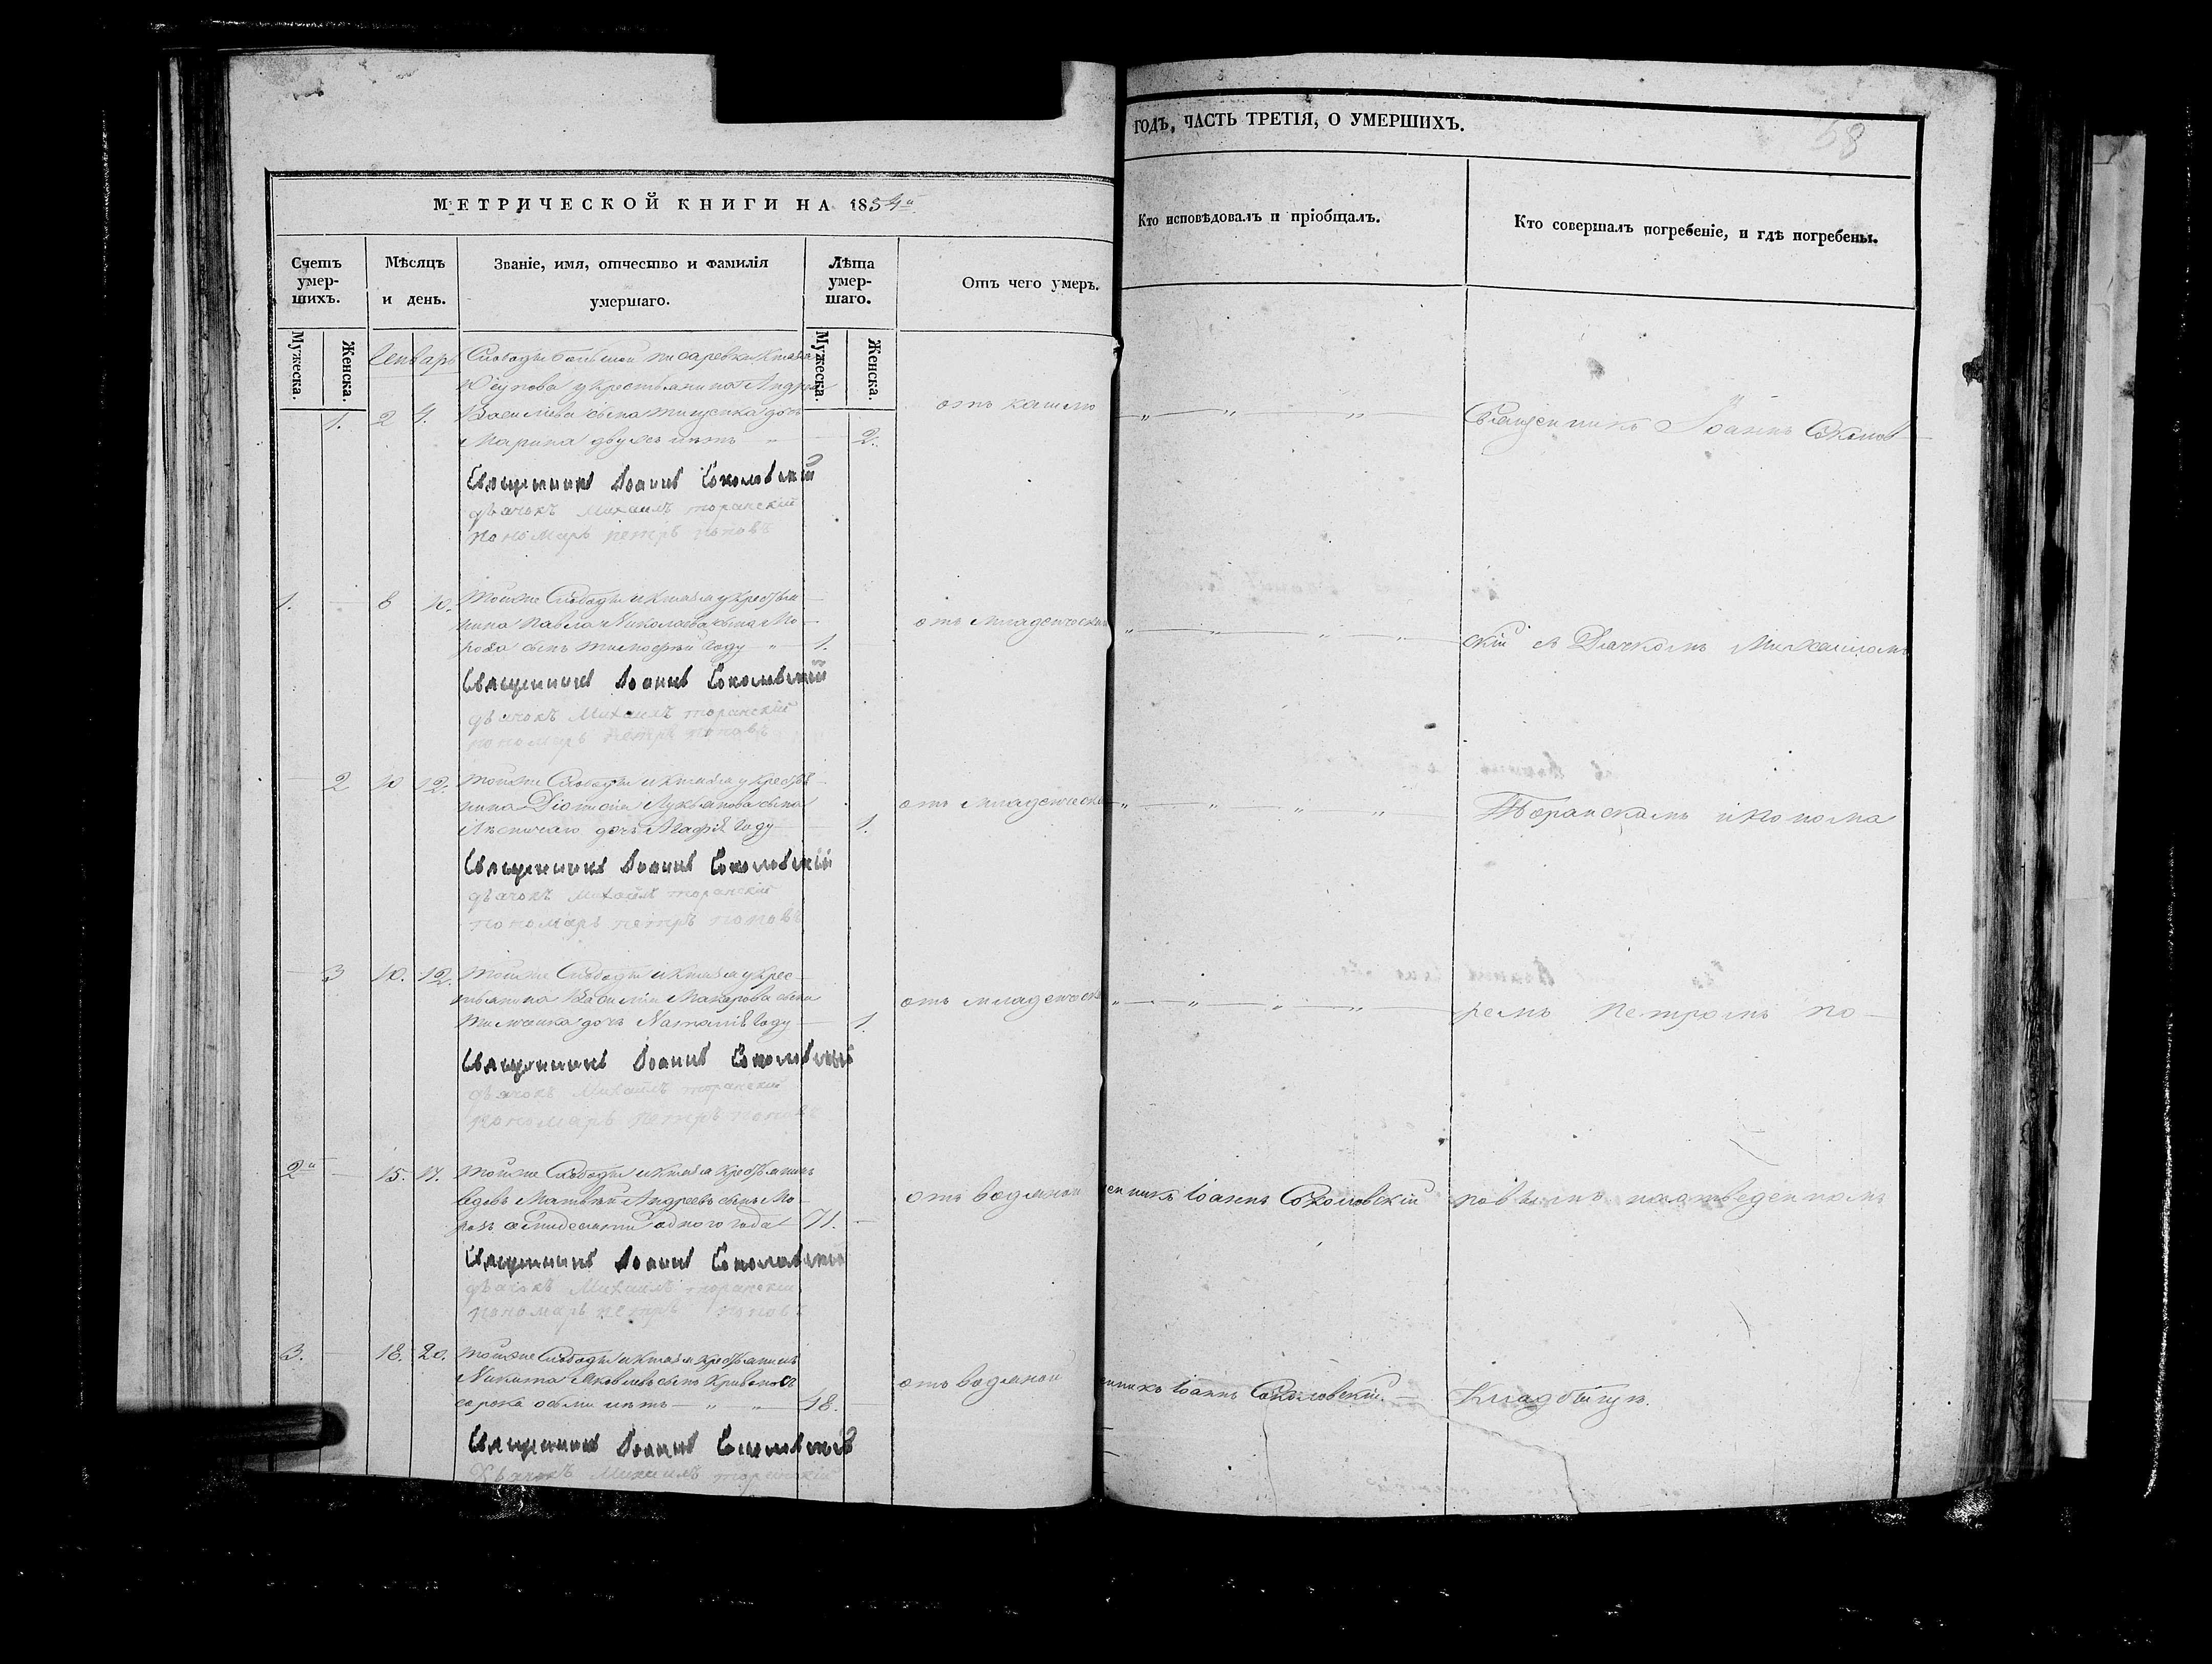 МЕТРИЧЕСКОЙ КНИГИ НА 1854й
Счетъ умер-шихъ.
Мѣсяцъ и день.
Званіе, имя, отчество и фамилія умершаго.
Лѣта умер-шаго.
Отъ чего умеръ.
Мужеска.
Женска.
Мужеска.
Женска.
Генварь
Слободы большой писаревки Князя
Юсупова у крестьянина Андрея
1. 2 4. Василіева сына дочь
Марина двухъ лѣтъ 2.
отъ кашлю
Священникъ Іоаннъ Соколовскій
дьячокъ Михаилъ торанскій
пономарь петръ поповъ
1. 8 10. Тойже Слободы и Князя у крестья
нина Павла Николаева сына Мо-
роза сынъ Тимофей году 1.
отъ младенческой
Священникъ Іоаннъ Соколовскій
дьячокъ Михаилъ торанскій
пономарь петръ поповъ
2 10 12. Тойже Слободы и Князя у крестья
нина Лукьянова сына
дочь году 1.
отъ младенческой
Священникъ Іоаннъ Соколовскій
дьячокъ Михаилъ торанскій
пономарь петръ поповъ
3 10. 12. Тойже Слободы и Князя у крес-
тьянина Василія Макарова сына
дочь Наталія году 1.
отъ младенческой
Священникъ Іоаннъ Соколовскій
дьячокъ Михаилъ торанскій
пономарь петръ поповъ
2й 15. 17. Тойже Слободы и Князя крестьянинъ
вдовъ Матвей Андреевъ сынъ Мо-
розъ семидесяти одного года 71.
отъ водяной
Священникъ Іоаннъ Соколовскій
дьячокъ Михаилъ торанскій
пономарь петръ поповъ
3. 18. 20. Тойже Слободы и Князя крестьянинъ
Никита Яковлевъ сынъ
сорока осми лѣтъ 48.
отъ водяной
Священникъ Іоаннъ Соколовскій
Дьячокъ Михаилъ торанскій
ГОДЪ, ЧАСТЬ ТРЕТІЯ, О УМЕРШИХЪ.
58
Кто исповѣдовалъ и пріобщалъ.
Кто совершалъ погребеніе, и гдѣ погребены.
Священникъ Іоаннъ Соколов-
скій съ Дьячкомъ Михаиломъ
Торанскимъ и понома
ремъ Петромъ По-
енникъ Іоаннъ Соколовскій
повымъ на отведенномъ
енникъ Іоаннъ Соколовскій.
Кладбищѣ.